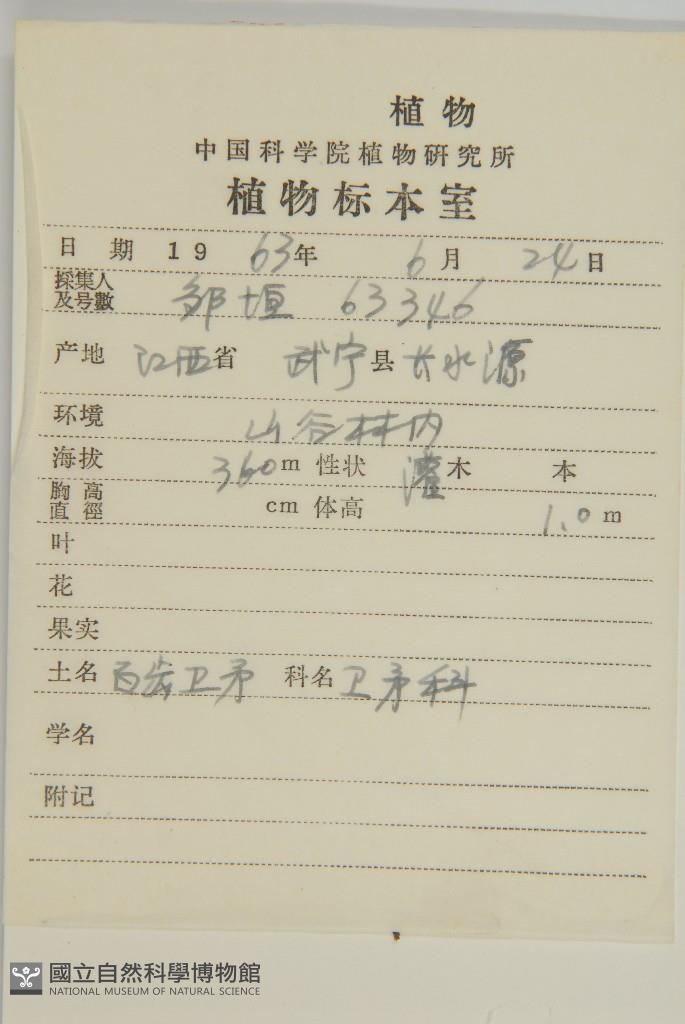 植物
中国科学院植物研究所
植物标本室
日 期 1963年 6月 24日
採集人及号數 邹垣 63346
产地 江西省 武宁县 长水源
环境 山谷林内
海拔 360m 性状 灌木 本
胸高直徑 cm 体高 1.0m
叶
花
果实
土名 百齿卫矛 科名 卫矛科
学名
附记
國立自然科學博物館
NATIONAL MUSEUM OF NATURAL SCIENCE